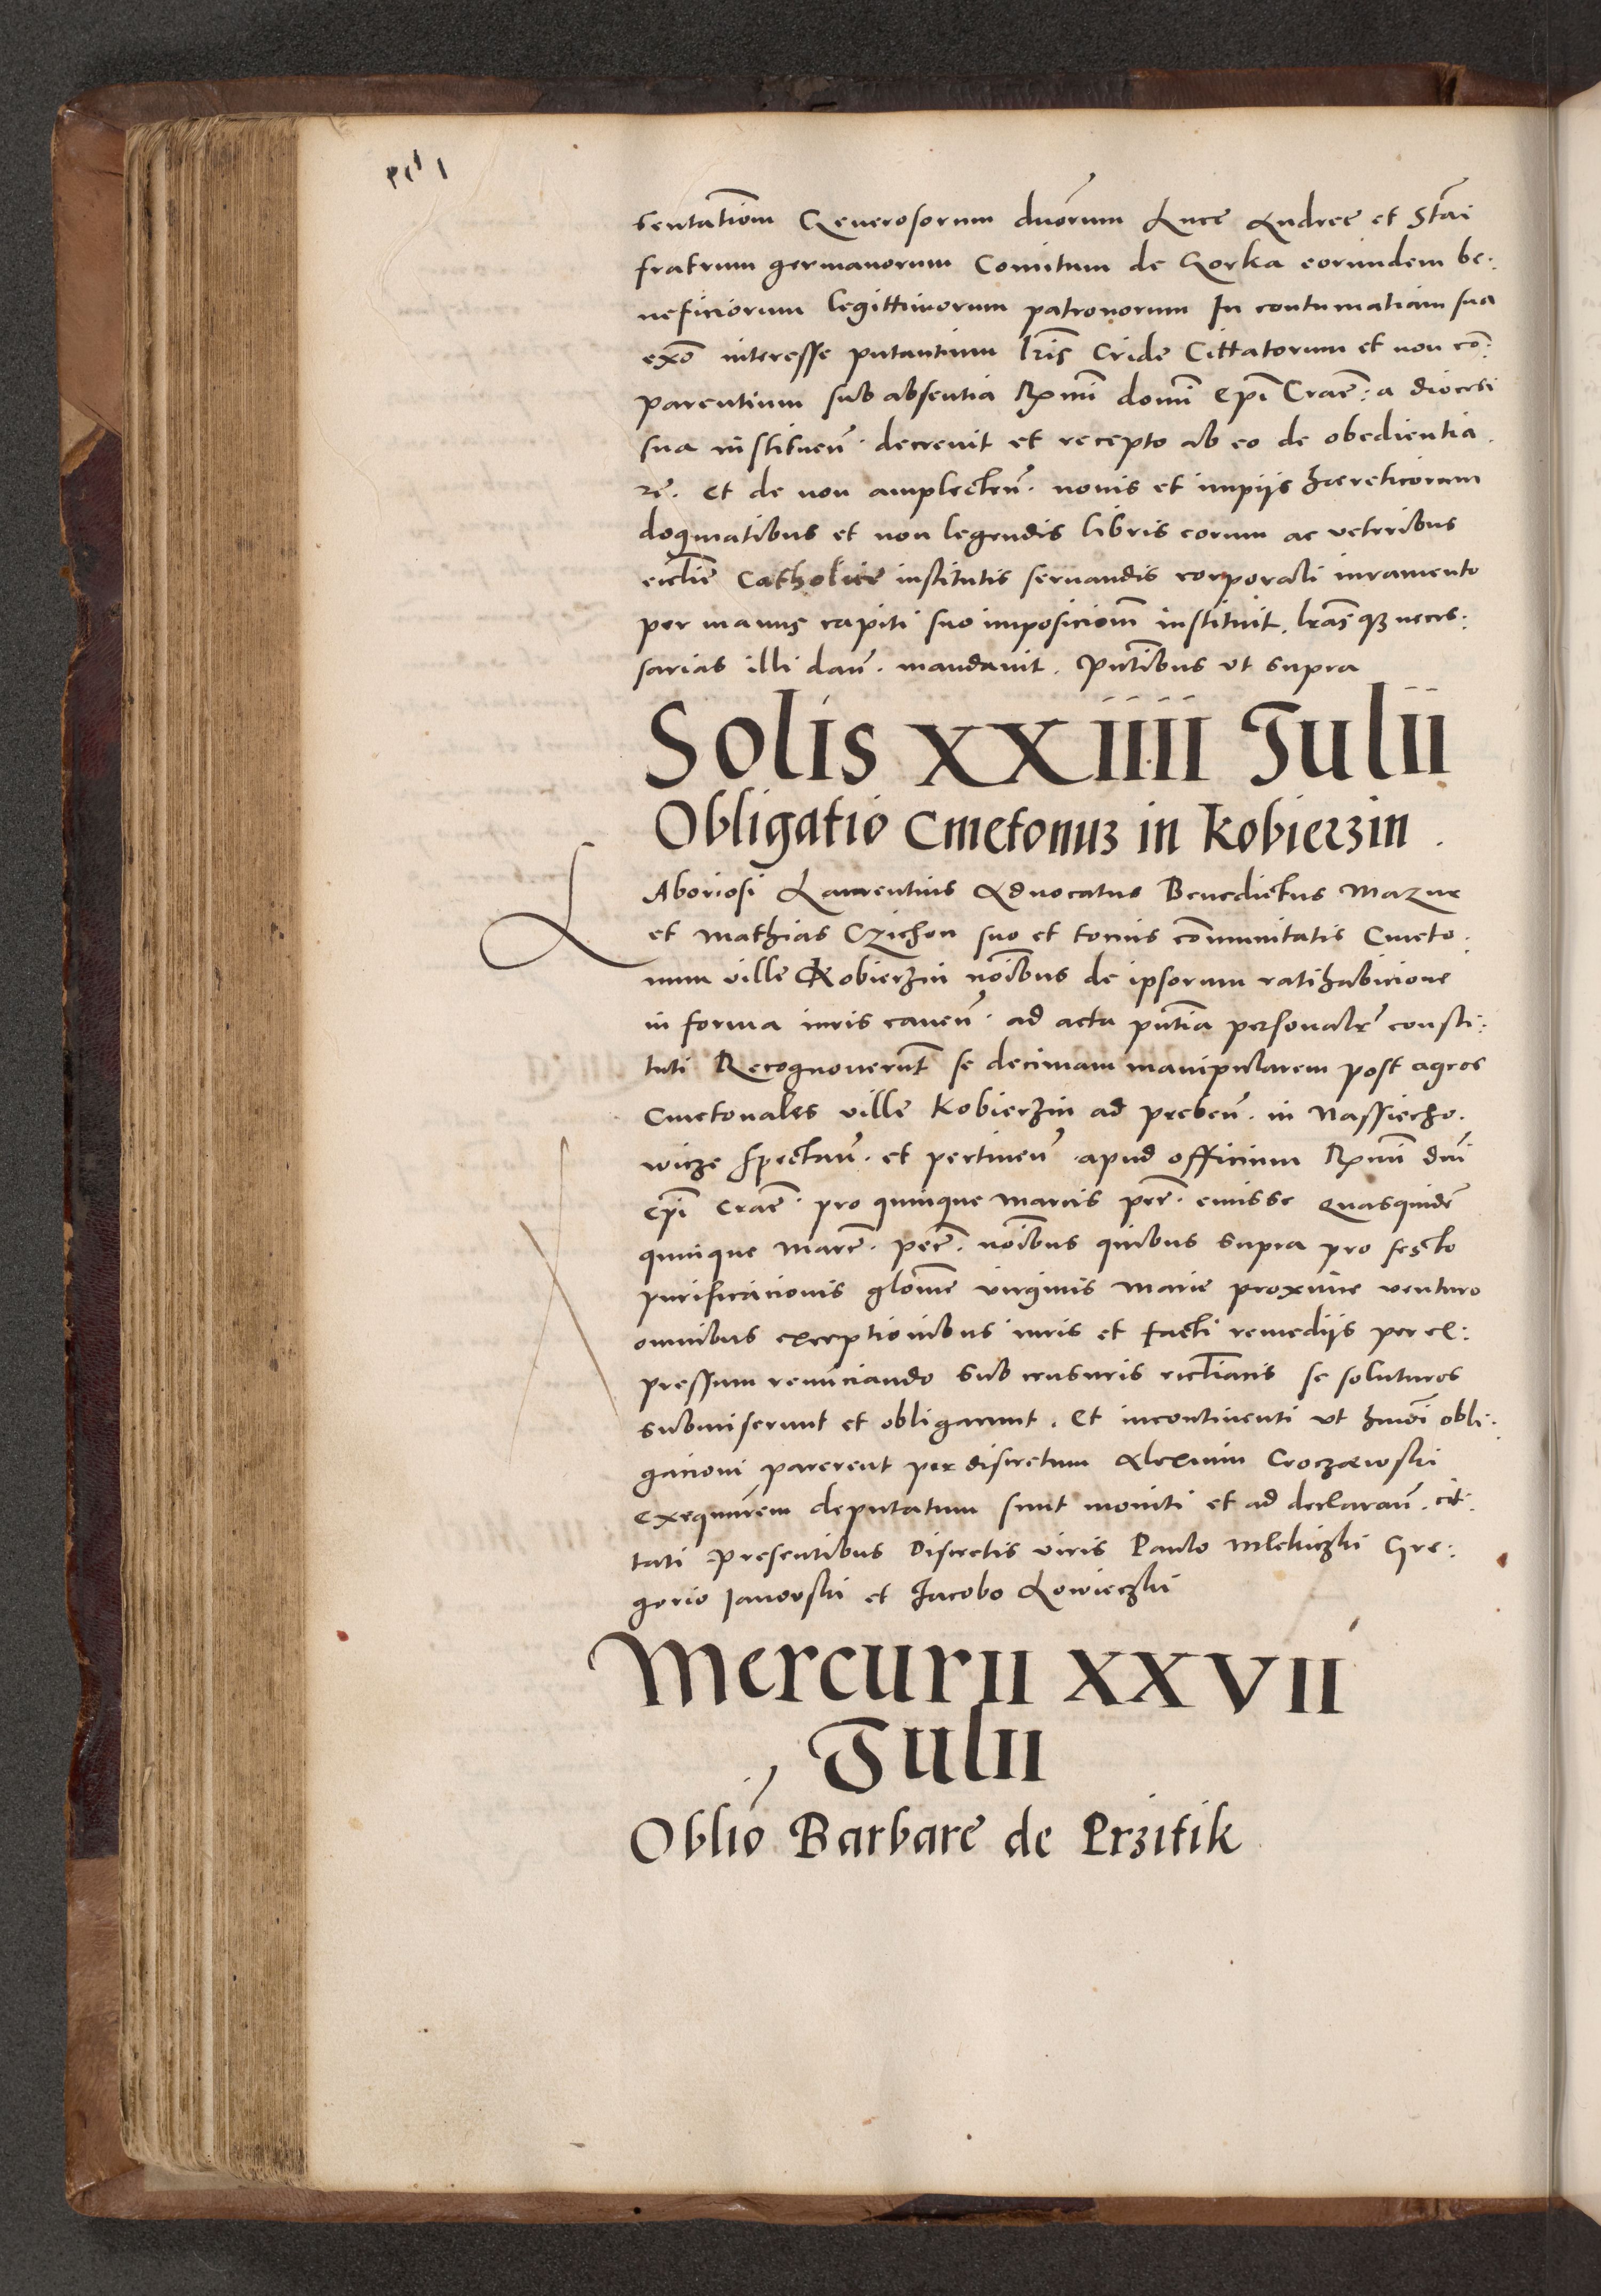 sentatiom Generosorum duorum Luce Andree et Stãi
fratrum germanorum Comitum de Gorka eorundem be:
neficiorum legittimorum patronorum In contumatiam sua
exõ interesse putantium lris Cride Cittatorum et non cõ:
parentium sub absentia Rx̃mi domi Ep̃i Crac̃: a diocesi
sua instituen̄. decrevit et recepto ab eo de obedientia.
rē. Et de non amplecten̄. novis et impijs hæreticorum
dogmatibus et non legendis libris eorum ac veteribus
ecclie Catholice institutis servandis corporali iuramento
per manus capiti suo imposiciom instituit. lras qꝫ neces:
sarias illi dan̄. mandavit. Pñtibus ut supra
Solis XXIIII Julii
Obligatio Cmetonuꝫ in Kobierzin.
LAboriosi Laurentius Advocatus Benedictus Mazur
et Mathias Czichon suo et tocius cõmunitatis Cmeto:
num ville Kobierzin nõibus de ipsorum ratihabicione
in forma iuris caven̄. ad acta pñtia personalr̃ consti:
tuti Recognoverũt se decimam manipularem post agros
Cmetonales ville Kobierzin ad preben̄. in Nassiecho.
wicze spectan̄. et pertinen̄ apud officium Rx̃mi dñi
Ep̃i Crac̃. pro quinque marcis pec̃. emisse Quasquidẽ
quinque marc̃. pec̃. nõibus quibus supra pro festo
purificacionis gloriose virginis Marie proxime venturo
omnibus exceptionibus iuris et facti remediis per ex:
pressum renunciando sub censuris ecclianis se soluturos
submiserunt et obligarunt. Et incontinenti ut hmõi obli:
gacioni parerent per discretum Alexium Croczewski
exequutorem deputatum sunt moniti et ad declaran̄. cit:
tati Presentibus Discretis viris Paulo Mlekiczki Gre:
gorio Janovski et Jacobo Lowieczki
Mercurii XXVII
Julii
Oblio Barbare de Przitik